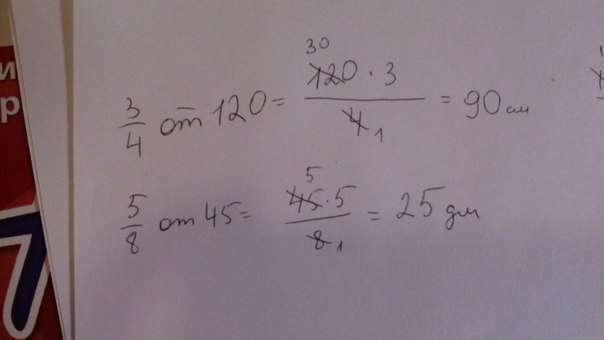 и
р
7
3/4 от 120 = 30 120 · 3 / 4 1 = 90 см
5/8 от 45 = 5 45 · 5 / 8 1 = 25 дм